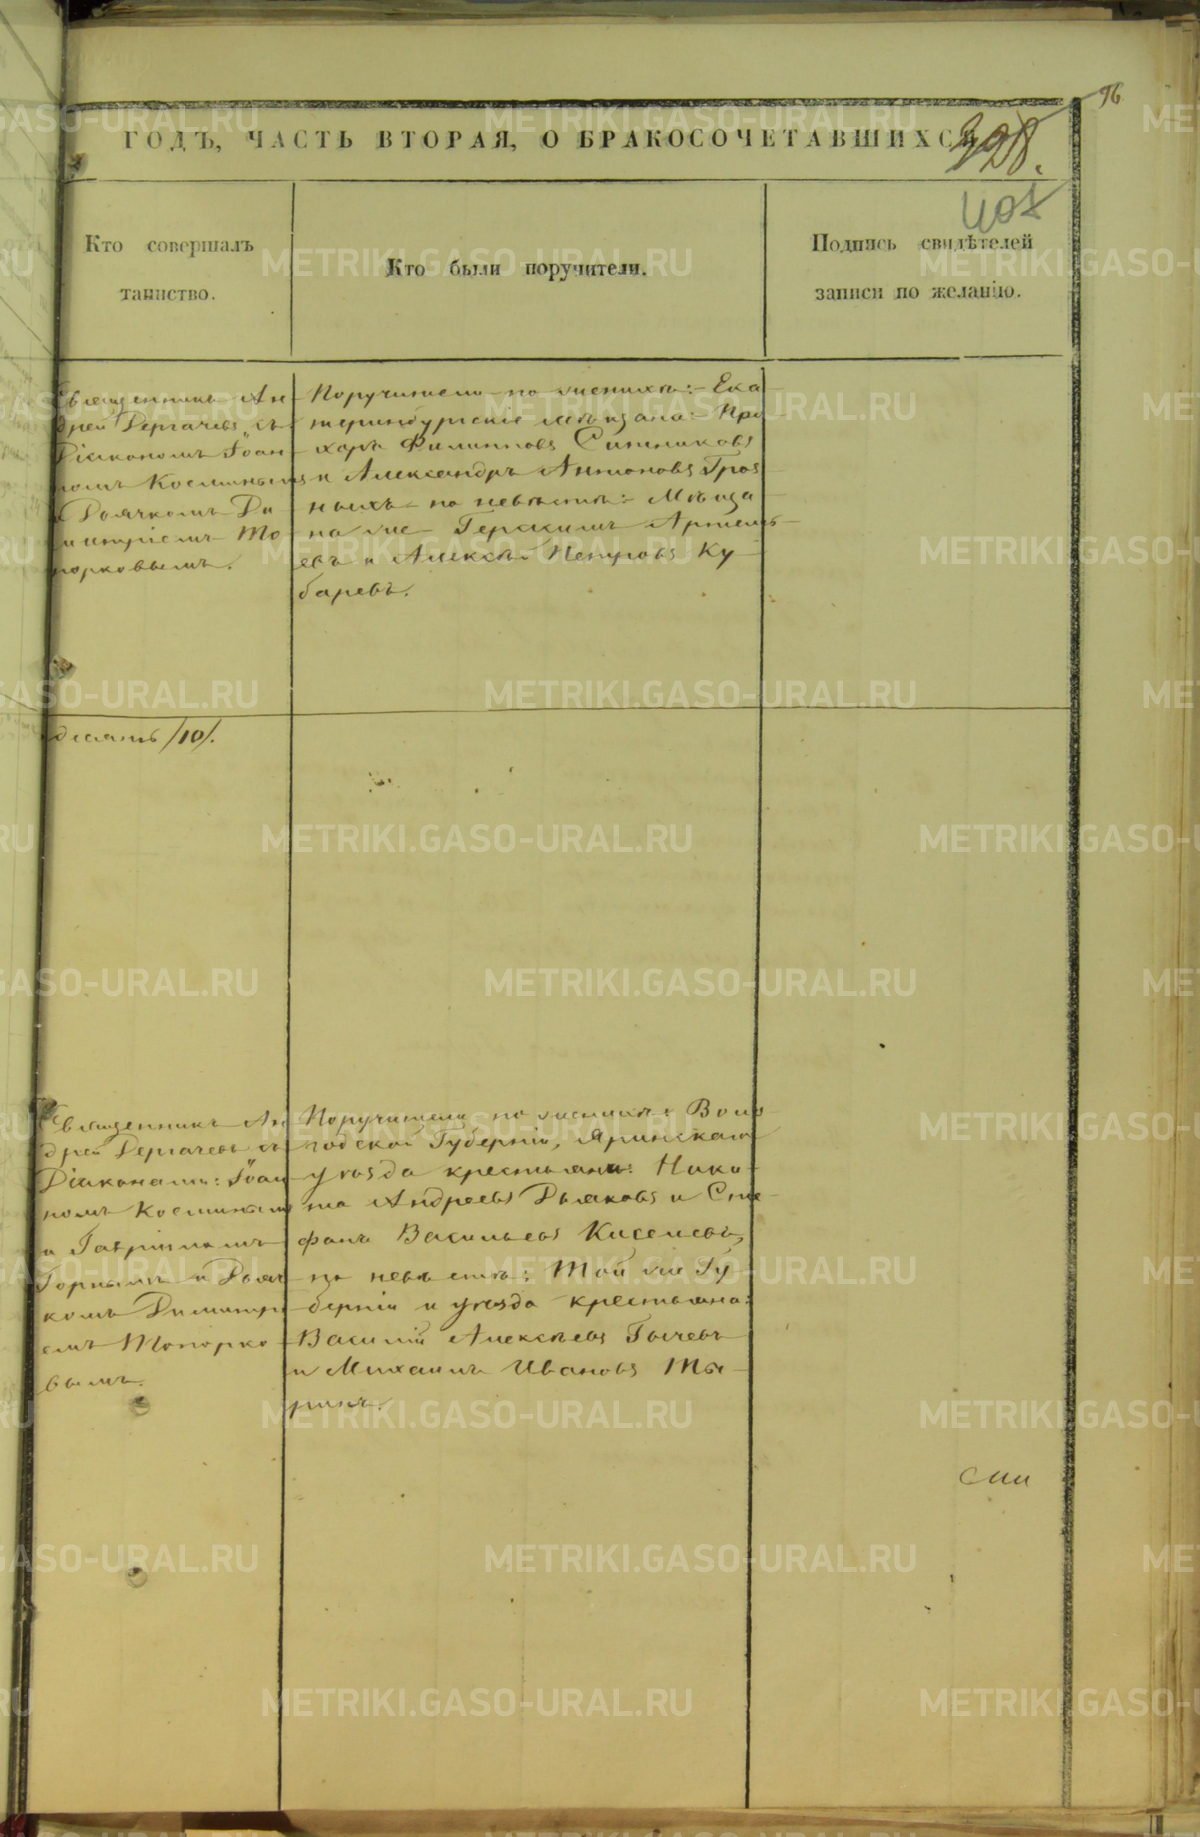 96
ГОДЪ, ЧАСТЬ ВТОРАЯ, О БРАКОСОЧЕТАВШИХСЯ
398.
407
Кто совершалъ
таинство.
Кто были поручители.
Подпись свидѣтелей
записи по желанію.
Священникъ Ан
дрей Дергачевъ съ
Діакономъ Іоан
номъ Космины
и Дьячкомъ Ди
митріемъ То
порковымъ.
Поручители по женихѣ: Ека
теринбургскіе мѣщана: Про
хоръ Филипповъ Ситниковъ
и Александръ Антоновъ Гроз
ныхъ по невѣстѣ: Мѣща
на же Герасимъ Артемь
евъ и Алексѣй Петровъ Ку
баревъ.
десять /10/.
Священникъ Ан
дрей Дергачевъ съ
Діаконами: Іоан
номъ Косминым
и Гавріиломъ
Горнымъ и Дьяч
комъ Димитрі
емъ Топорко
вымъ.
Поручители по женихѣ: Воло
годской Губерніи, Яринскаго
уѣзда крестьяна: Ники
та Андреевъ Дьяковъ и Сте
фанъ Васильевъ Киселевъ,
по невѣстѣ: Той же Гу
берніи и уѣзда крестьяна:
Василій Алексѣевъ Гычевъ
и Михаилъ Ивановъ Ты
ринъ.
METRIKI.GASO-URAL.RU